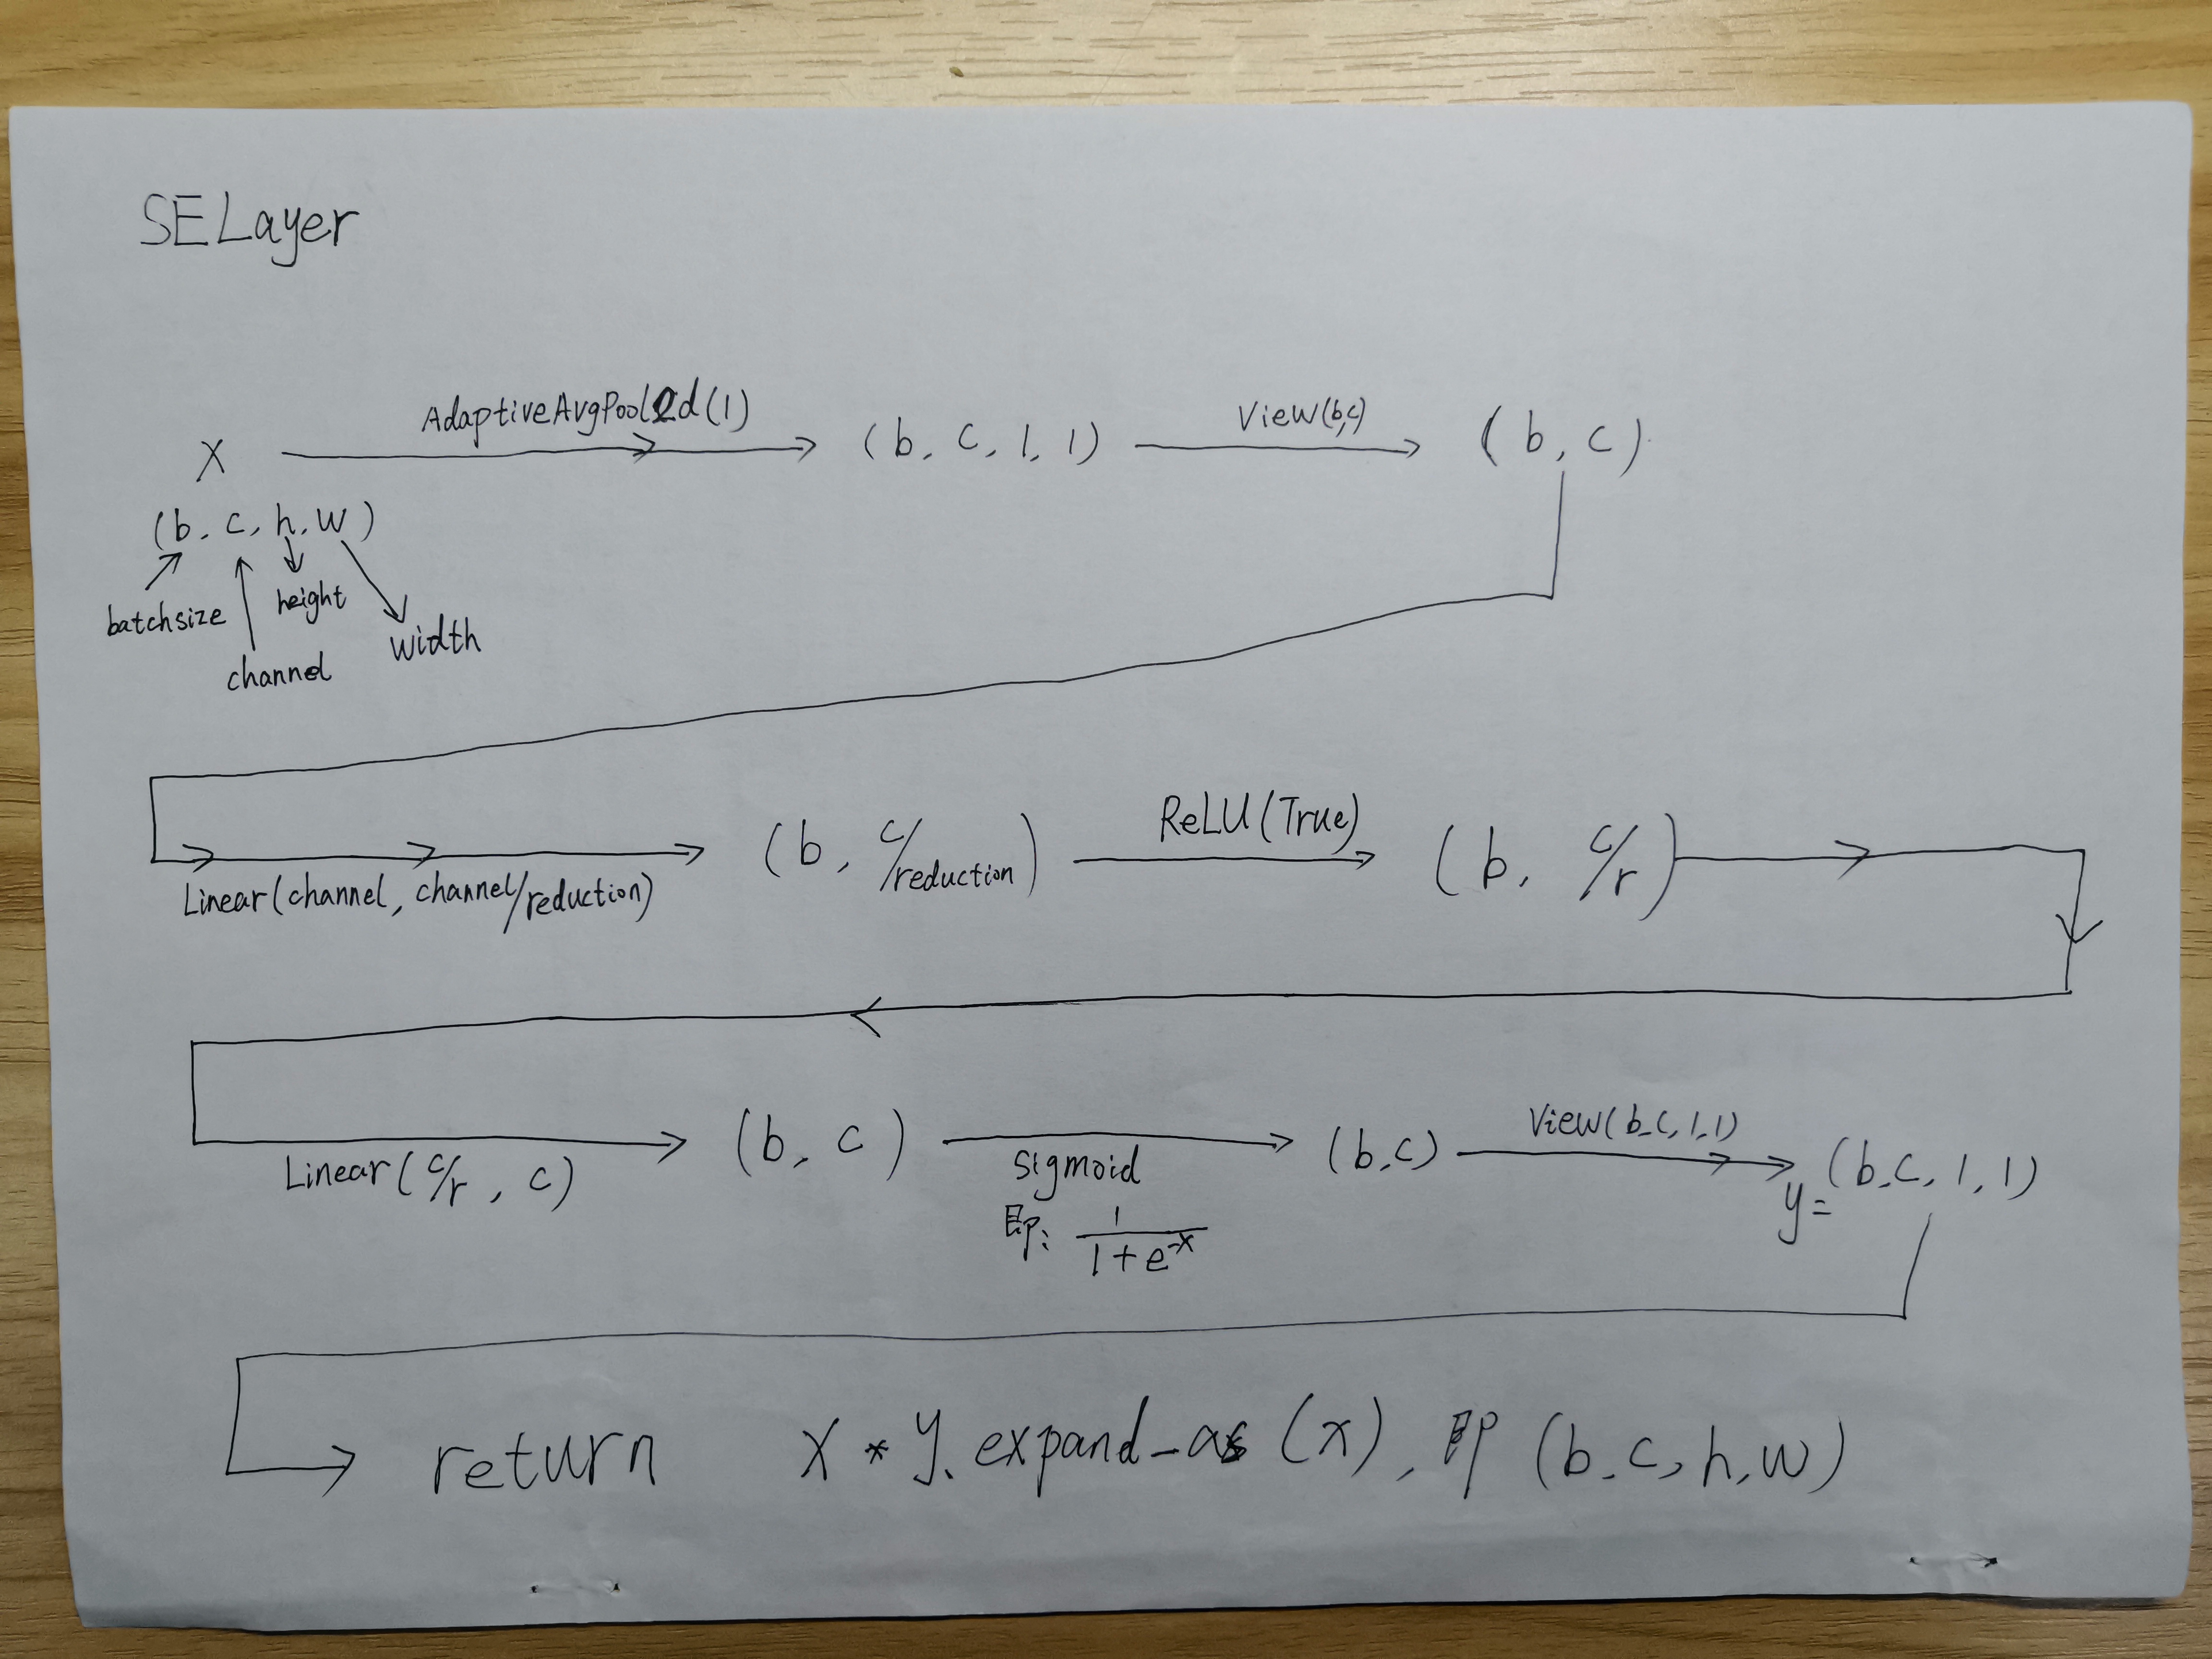 SELayer
AdaptiveAvgPool2d(1) View(b,c)
X (b, c, 1, 1) (b, c)
(b, c, h, w)
batchsize height
channel width
ReLU(True)
(b, c/reduction) (b, c/r)
Linear(channel, channel/reduction)
View(b,c,1,1)
(b, c) (b,c) y=(b,c,1,1)
Linear(c/r, c) Sigmoid
即: 1/1+e^-x
return X * y.expand_as(x), 即 (b,c,h,w)